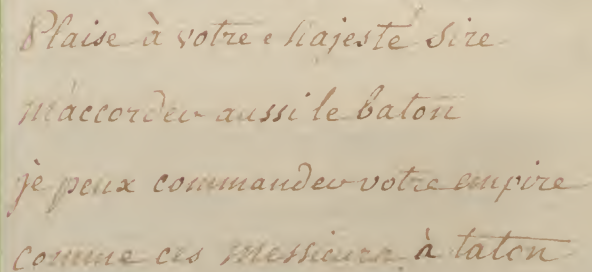 Plaise à votre Majeste Sire
m'accorder aussi le baton
je peux commander votre empire
comme ces messieurs à taton